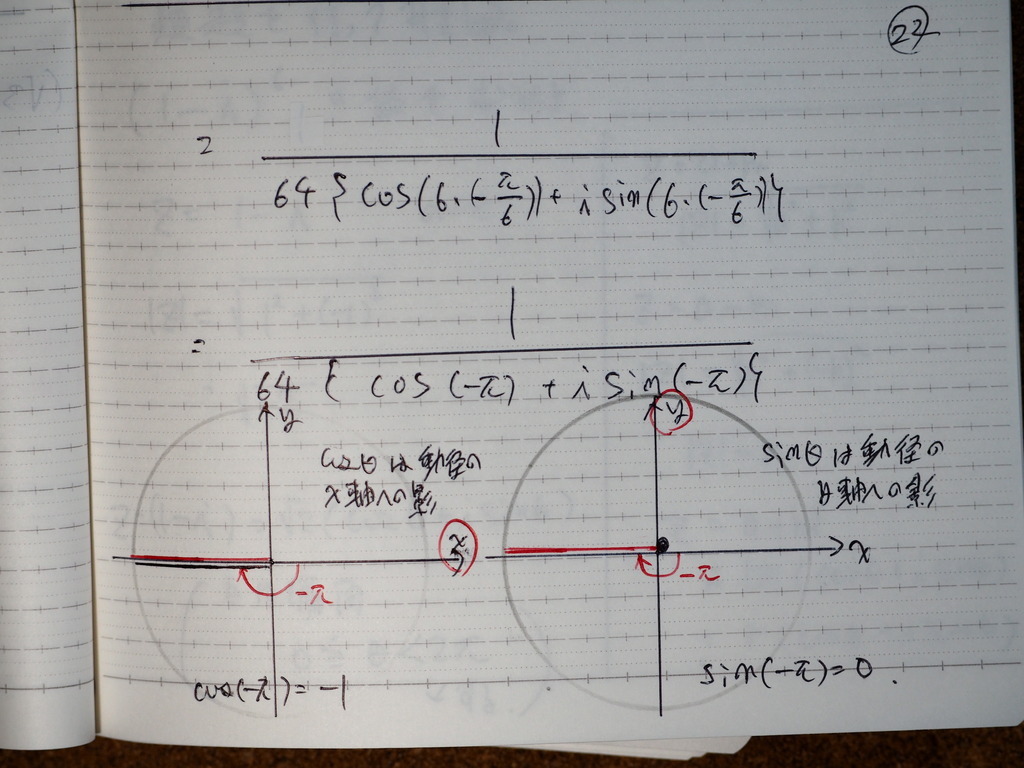 22
= 1
64 { cos(6・(-π/6)) + i sin(6・(-π/6)) }
= 1
64 { cos (-π) + i sin (-π) }
y
cosθは動径の
x軸への影
x
-π
cos(-π) = -1
y
sinθは動径の
y軸への影
x
-π
sin(-π) = 0.